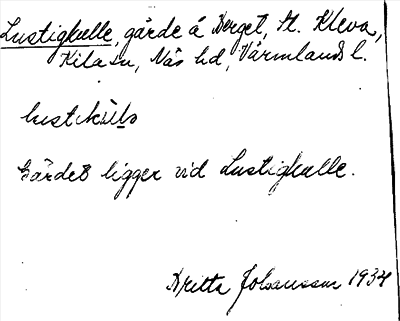 Lustigkulle, gärde å Berget, St. Kleva,
Kila sn, Näs hd, Värmlands l.
Gärdet ligger vid Lustigkulle.
Britta Johansson 1934